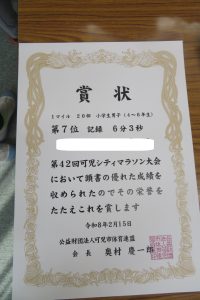 賞状
1マイル 20部 小学生男子(4〜6年生)
第7位 記録 6分3秒
第42回可児シティマラソン大会
において頭書の優れた成績を
収められたのでその栄誉を
たたえこれを賞します
令和8年2月15日
公益財団法人可児市体育連盟
会長 奥村慶一郎